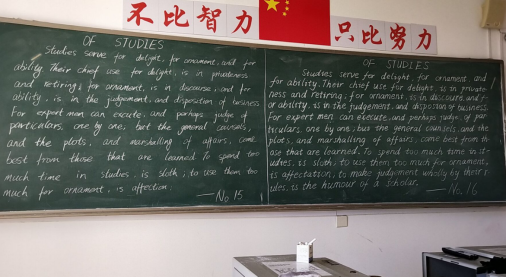 不比智力 只比努力
OF STUDIES
Studies serve for delight, for ornament, and for
ability. Their chief use for delight, is in privateness
and retiring; for ornament, is in discourse; and for
ability, is in the judgement, and disposition of business
For expert men can excute, and perhaps judge of
particulars, one by one; but the general counsels,
and the plots, and marshalling of affairs, come
best from those that are learned To spend too
much time in studies, is sloth; to use them too
much for ornament, is affection;
—No 15
OF STUDIES
Studies serve for delight, for ornament, and
for ability. Their chief use for delight, is in private-
ness and retiring; for ornament is in discourse; and f-
or ability, is in the judgement, and disposition of business.
For expert men can execute, and perhaps judge of par-
ticulars, one by one; but the general counsels, and the
plots, and marshalling of affairs, come best from th-
ose that are learned. To spend too much time in st-
udies, is sloth; to use them too much for ornament,
is affectation; to make judgement wholly by their r-
ules, is the humour of a scholar.
—No. 16